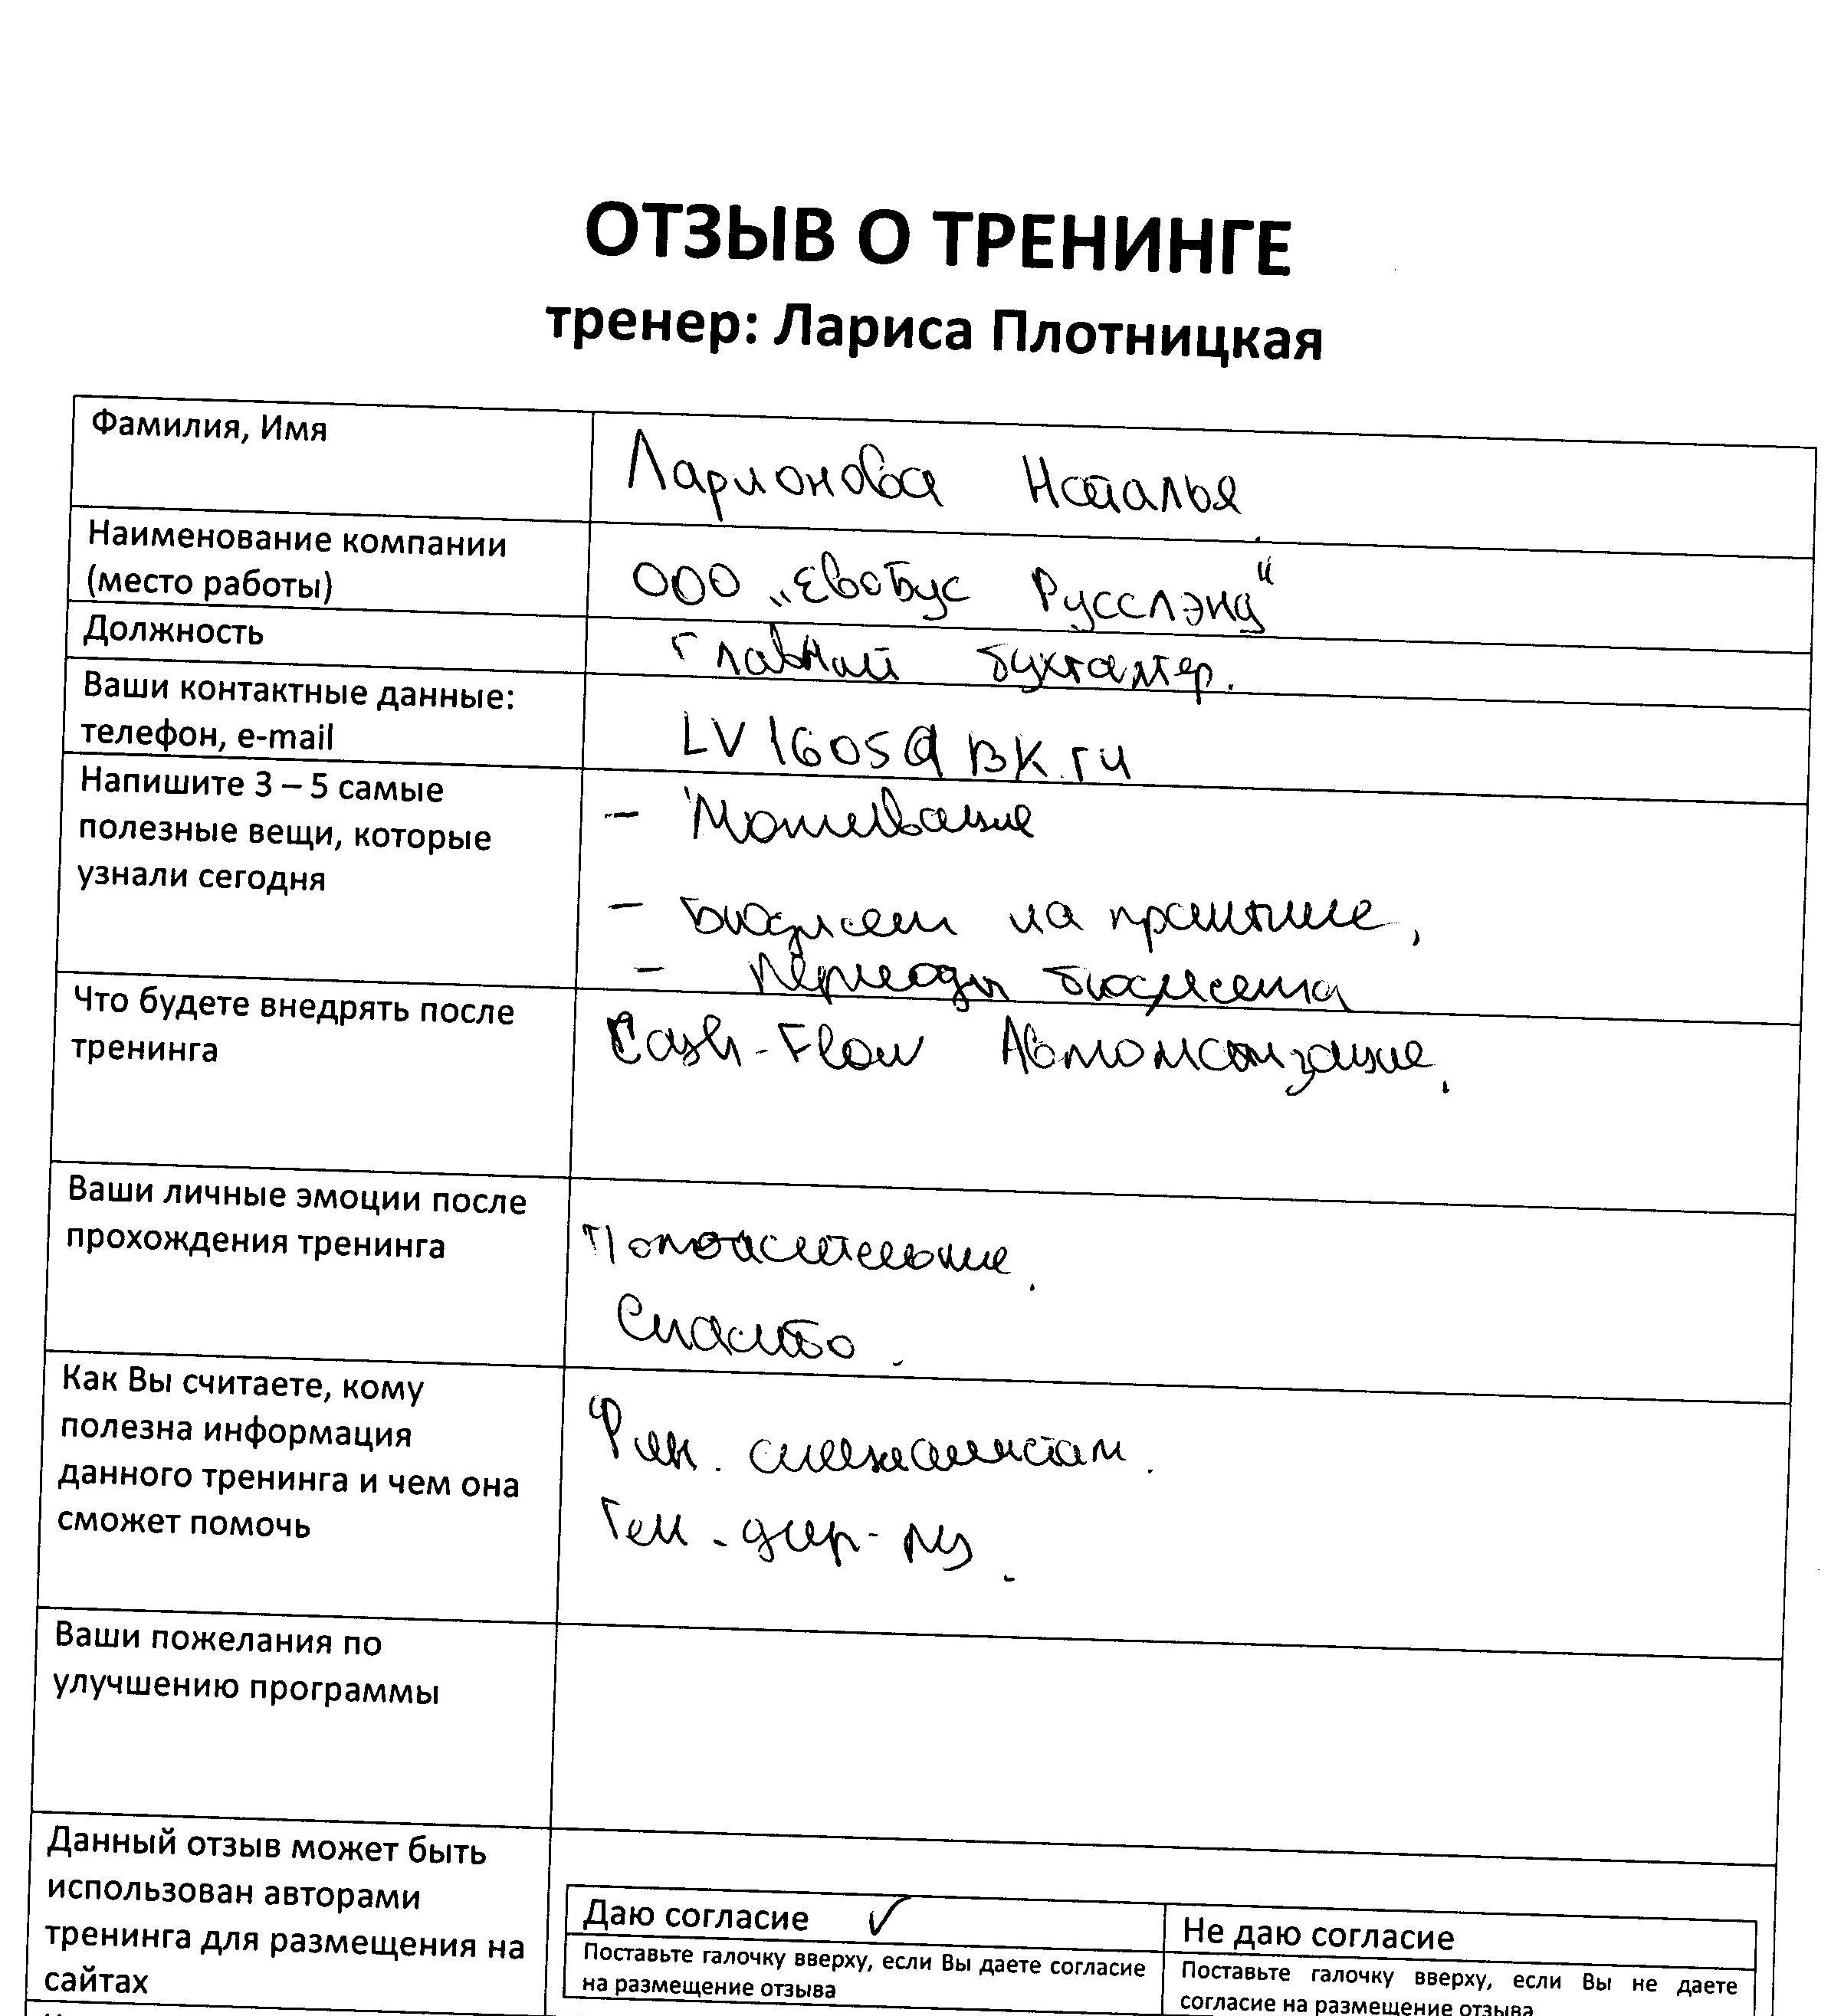 ОТЗЫВ О ТРЕНИНГЕ
тренер: Лариса Плотницкая
Фамилия, Имя
Ларионова Наталья
Наименование компании
(место работы)
ООО „ЕвоБус Русслэнд“
Должность
Главный бухгалтер.
Ваши контактные данные:
телефон, e-mail
LV1605@BK.ru
Напишите 3 – 5 самые
полезные вещи, которые
узнали сегодня
- Мотивация
- Бюджет на практике,
- Периоды бюджета
Что будете внедрять после
тренинга
Cash-Flow Автоматизация.
Ваши личные эмоции после
прохождения тренинга
Положительные.
Спасибо.
Как Вы считаете, кому
полезна информация
данного тренинга и чем она
сможет помочь
Фин. специалистам.
Ген. дир-ру.
Ваши пожелания по
улучшению программы
Данный отзыв может быть
использован авторами
тренинга для размещения на
сайтах
Даю согласие ✓
Поставьте галочку вверху, если Вы даете согласие
на размещение отзыва
Не даю согласие
Поставьте галочку вверху, если Вы не даете
согласие на размещение отзыва